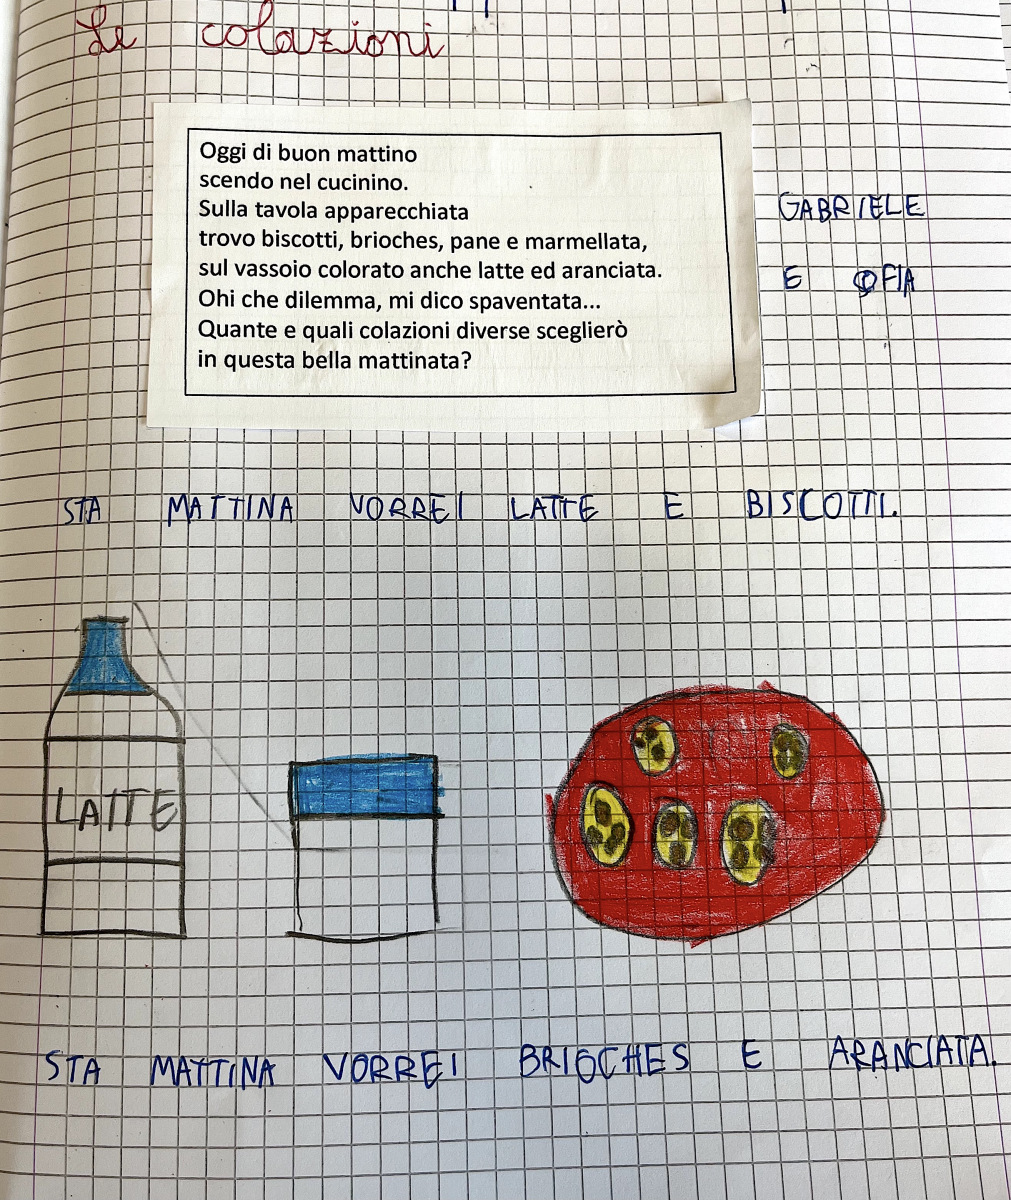 Le colazioni
Oggi di buon mattino
scendo nel cucinino.
Sulla tavola apparecchiata
trovo biscotti, brioches, pane e marmellata,
sul vassoio colorato anche latte ed aranciata.
Ohi che dilemma, mi dico spaventata...
Quante e quali colazioni diverse sceglierò
in questa bella mattinata?
GABRIELE
E OFIA
STA MATTINA VORREI LATTE E BISCOTTI.
LATTE
STA MATTINA VORREI BRIOCHES E ARANCIATA.